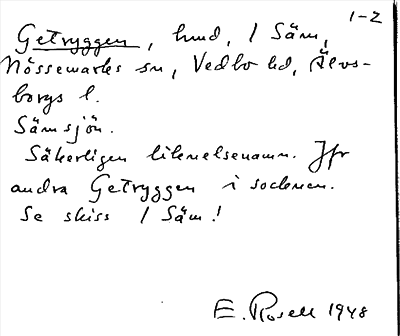 1-2
Getryggen, hund, 1 Säm,
Nössemarks sn, Vedbo hd, Älvs-
borgs l.
Sämsjön.
Säkerligen liknelsenamn. Jfr
andra Getryggen i socknen.
Se skiss 1 Säm!
E. Rosell 1948